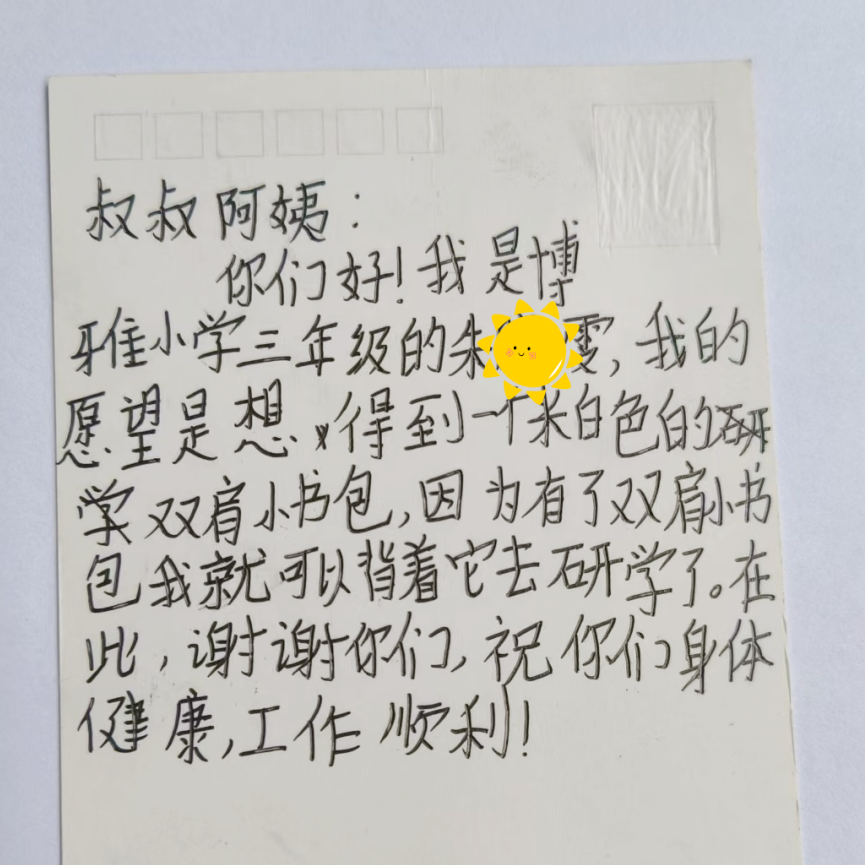 叔叔阿姨：
你们好！我是博
雅小学三年级的朱雯，我的
愿望是想得到一个米白色的研
学双肩小书包，因为有了双肩小书
包我就可以背着它去研学了。在
此，谢谢你们，祝你们身体
健康，工作顺利！